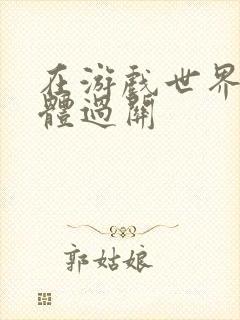 在游戏世界
體過關
郭姑娘